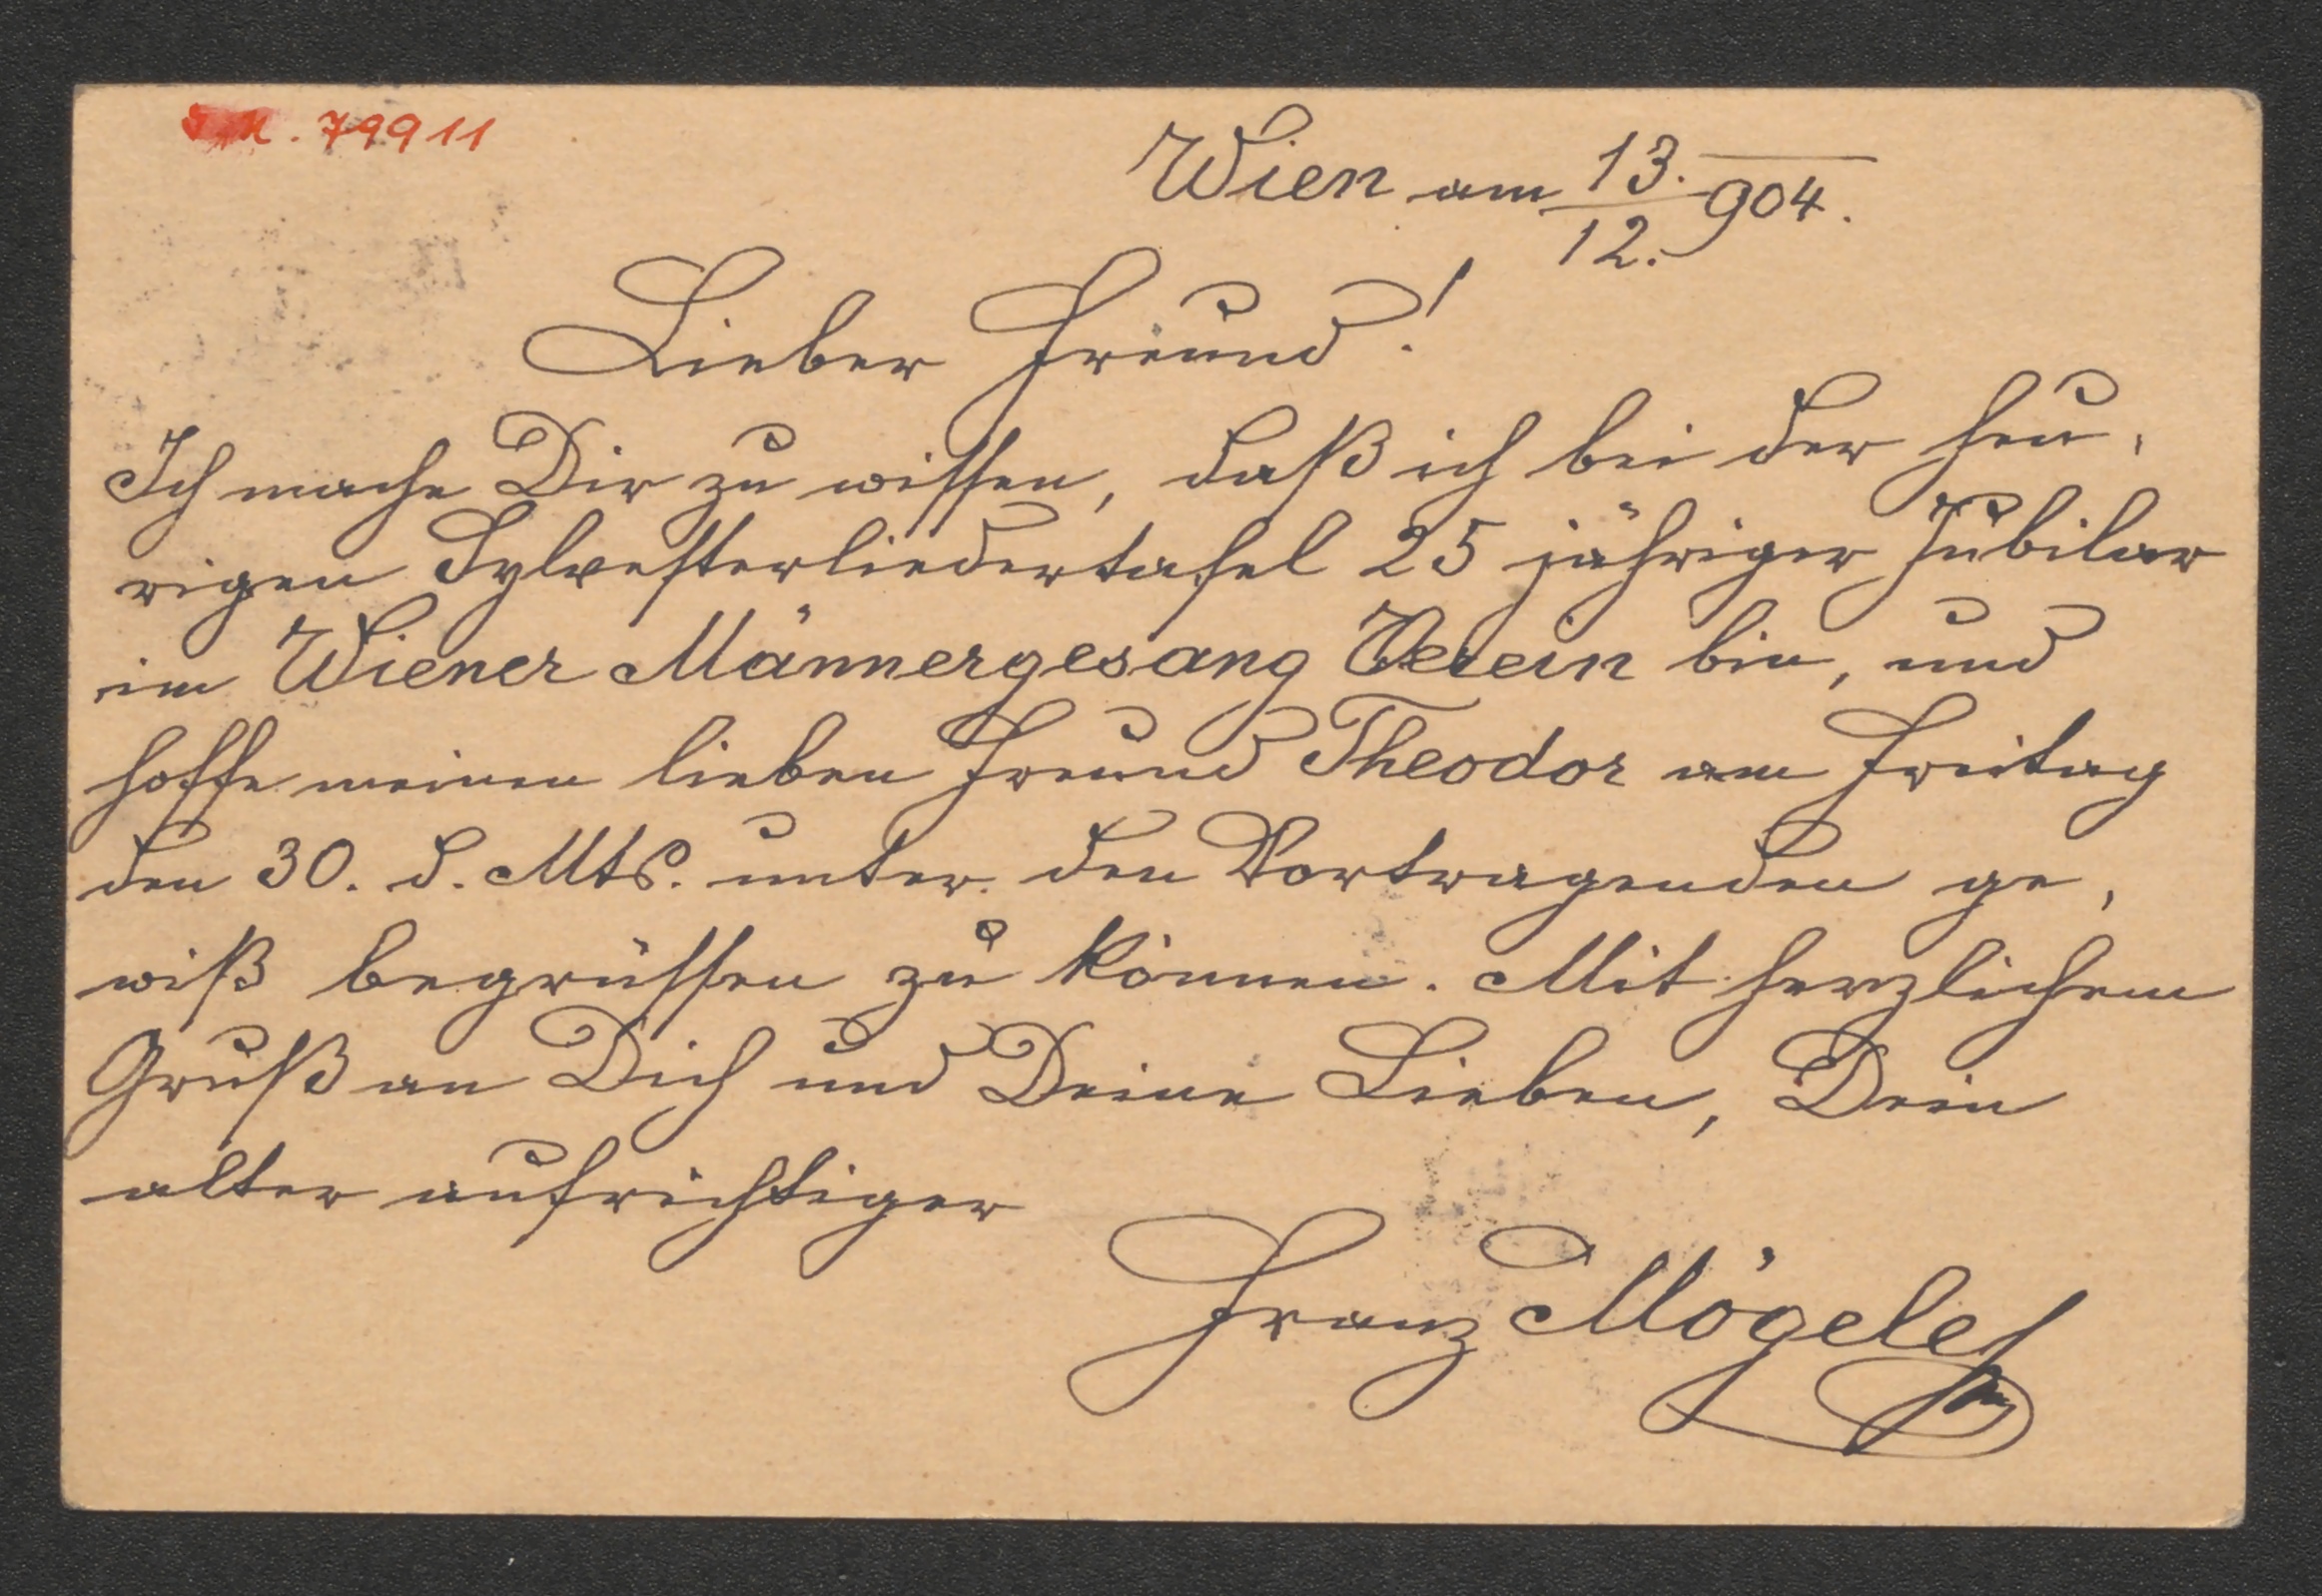 N. 79911
Wien am 13./12. 904.
Lieber Freund!
Ich mache Dir zu wissen, daß ich bei der heu,
rigen Sylvesterliedertafel 25 jähriger Jubilar
im Wiener Männergesang Verein bin, und
hoffe meinen lieben Freund Theodor am Freitag
den 30. d. Mts. unter den Vortragenden ge,
wiß begrüssen zu können. Mit herzlichem
Gruß an Dich und Deine Lieben, Dein
alter aufrichtiger
Franz Mögele